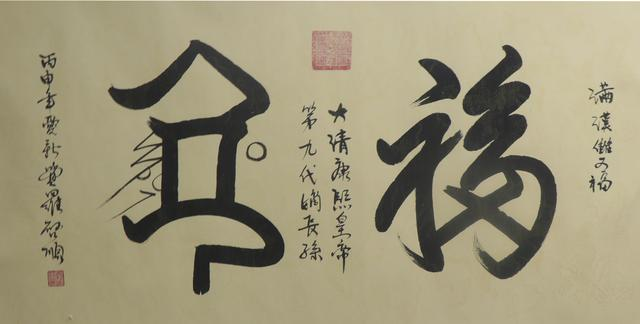 满漢雙福
福
大清康熙皇帝
第九代嫡長孫
丙申年愛新覺羅